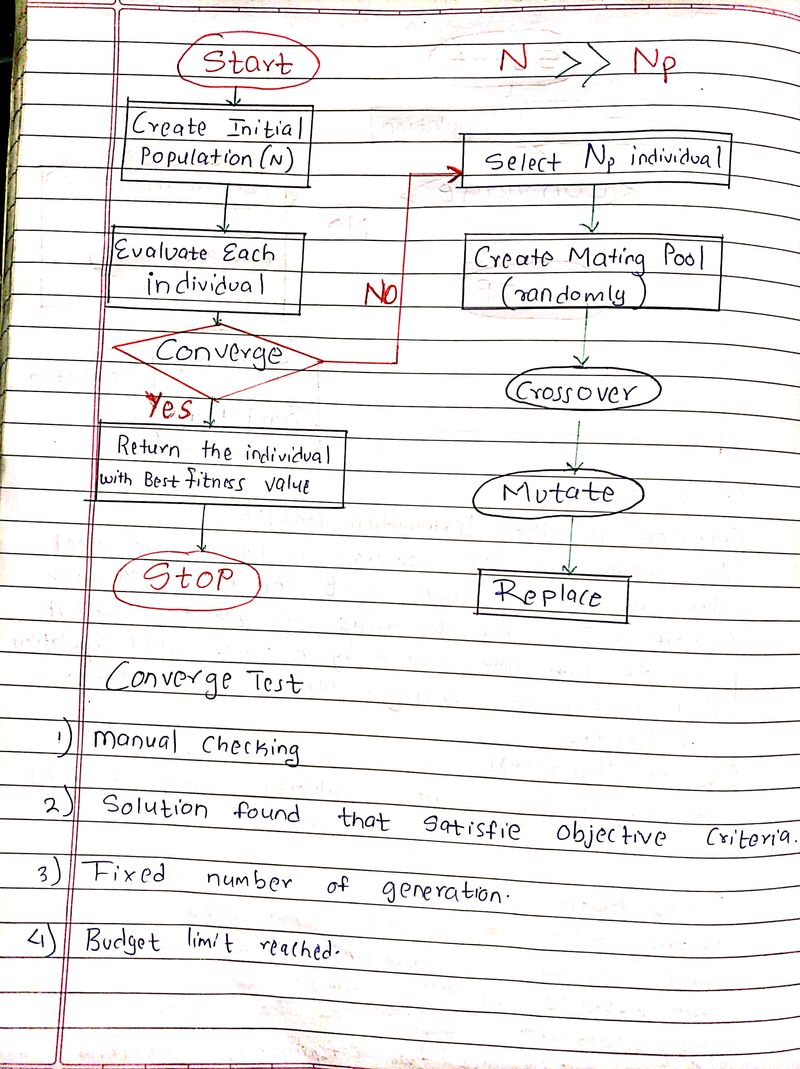 Start
N >> Np
Create Initial
Population (N)
Evaluate Each
individual
Converge
NO
Yes
Return the individual
with Best fitness value
STOP
Select Np individual
Create Mating Pool
(randomly)
Crossover
Mutate
Replace
Converge Test
1) Manual Checking
2) Solution found that satisfie objective Criteria.
3) Fixed number of generation.
4) Budget limit reached.